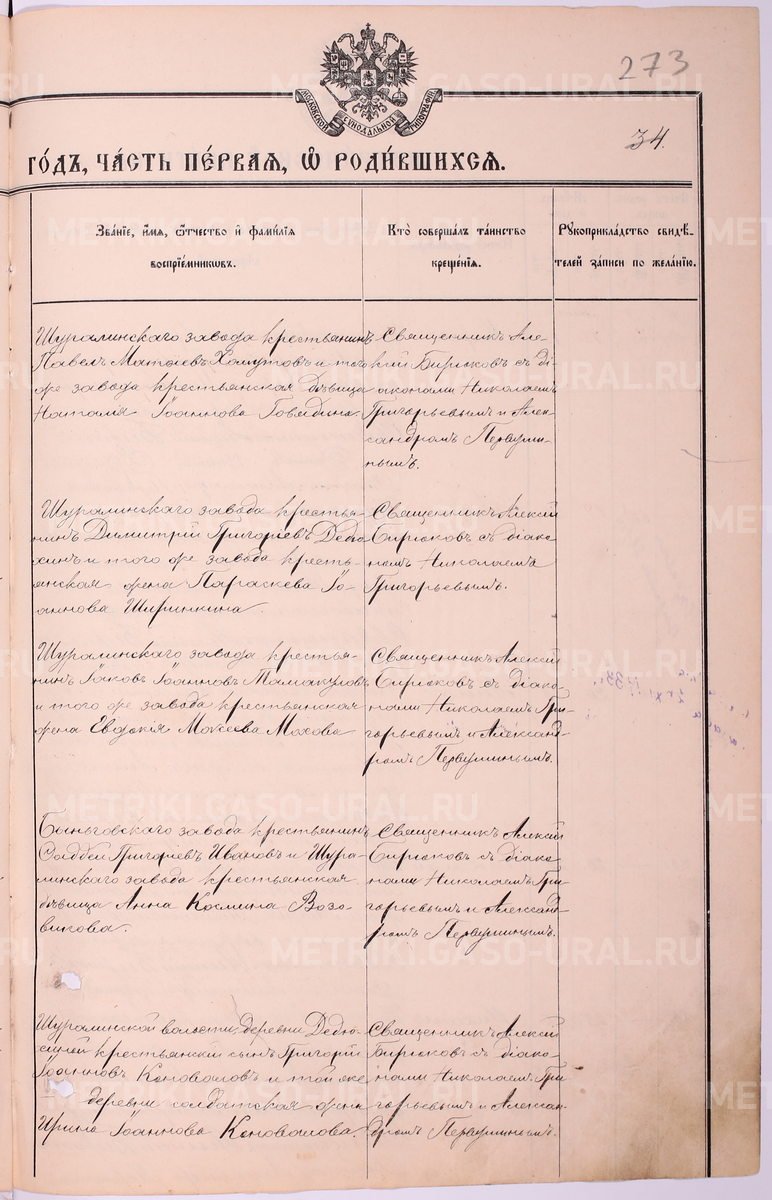 273
МОСКОВСКОЙ СѴНОДАЛЬНОЙ ТИПОГРАФІИ
34.
ГО́ДЪ, ЧА́СТЬ ПЕ́РВАЯ, Ѡ҆ РОДИ́ВШИХСЯ.
Зва́ніе, и҆́мя, ѻ҆́тчество и҆ фами́лїя
воспріе́мникѡвъ.
Кто̀ соверша́лъ та́инство
креще́нія.
Рꙋкоприкла́дство свидѣ́-
телей за́писи по жела́нїю.
Шуралинскаго завода крестьянинъ
Павелъ Матѳіевъ Хомутовъ и того
же завода крестьянская дѣвица
Наталія Іоаннова Говядина
Священникъ Але-
ксій Бирюковъ съ ді-
аконами Николаемъ
Григорьевымъ и Алек-
сандромъ Первуши-
нымъ.
Шуралинскаго завода крестья-
нинъ Димитрій Григоріевъ Дедю-
хинъ и того же завода кресть-
янская жена Параскева Іо-
аннова Ширинкина.
Священникъ Алексій
Бирюковъ съ діако-
номъ Николаемъ
Григорьевымъ.
Шуралинскаго завода кресть-
янинъ Іаковъ Іоанновъ Мамакуловъ
и того же завода крестьянская
жена Евдокія Моісеева Мохова
Священникъ Алексій
Бирюковъ съ діако-
нами Николаемъ Гри-
горьевымъ и Александ-
ромъ Первушинымъ.
Быньговскаго завода крестьянинъ
Ѳаддей Григоріевъ Ивановъ и Шура-
линскаго завода крестьянская
дѣвица Анна Космина Возо-
викова.
Священникъ Алексій
Бирюковъ съ діако-
нами Николаемъ Гри-
горьевымъ и Александ-
ромъ Первушинымъ.
Шуралинской волости, деревни Дедю-
хиной крестьянскій сынъ Григорій
Іоанновъ Коноваловъ и той же
деревни солдатская жена
Ирина Іоаннова Коновалова.
Священникъ Алексій
Бирюковъ съ діако-
нами Николаемъ Гри-
горьевымъ и Алексан-
дромъ Первушинымъ.
METRIKI.GASO-URAL.RU